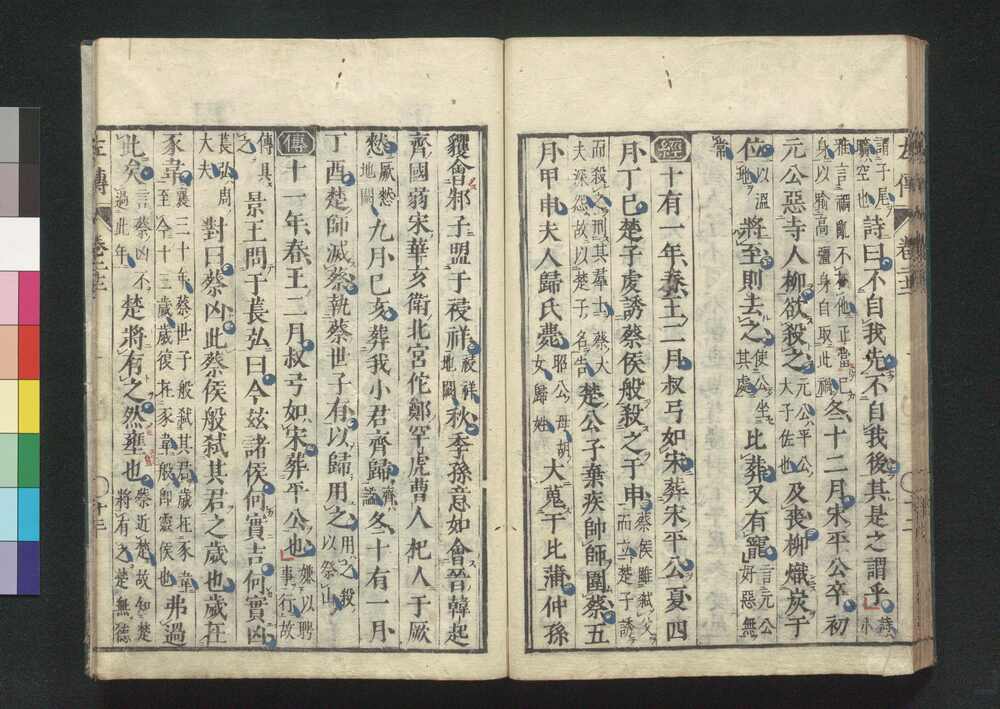 謂子尾曠空也詩曰不自我先不自我後其是之謂乎詩小
雅言禍亂不在他正當己身以喻高彊身自取此禍冬十二月宋平公卒初
元公惡寺人柳欲殺之元公平公大子佐也及喪柳熾炭于
位以溫地將至則去之使公坐其處比葬又有寵言元公好惡無
常
經十有一年春王二月叔弓如宋葬宋平公夏四
月丁巳楚子虔誘蔡侯般殺之于申蔡侯雖弒父而立楚子誘
而殺之刑其群士蔡大夫深怨故以楚子名告楚公子棄疾帥師圍蔡五
月甲申夫人歸氏薨昭公母胡女歸姓大蒐于比蒲仲孫
貜會邾子盟于祲祥祲祥地闕秋季孫意如會晉韓起
齊國弱宋華亥衛北宮佗鄭罕虎曹人杞人于厥
憖厥憖地闕九月己亥葬我小君齊歸齊謚冬十有一月
丁酉楚師滅蔡執蔡世子有以歸用之用之殺以祭山
傳十一年春王二月叔弓如宋葬平公也嫌以聘事行故
傳具之景王問于萇弘曰今玆諸侯何實吉何實凶
萇弘周大夫對曰蔡凶此蔡侯般弒其君之歲也歲在
豕韋襄三十年蔡世子般弒其君歲在豕韋至今十三歲歲復在豕韋般即靈侯也弗過
此矣言蔡凶不過此年楚將有之然壅也蔡近楚故知楚將有之楚無德
左傳